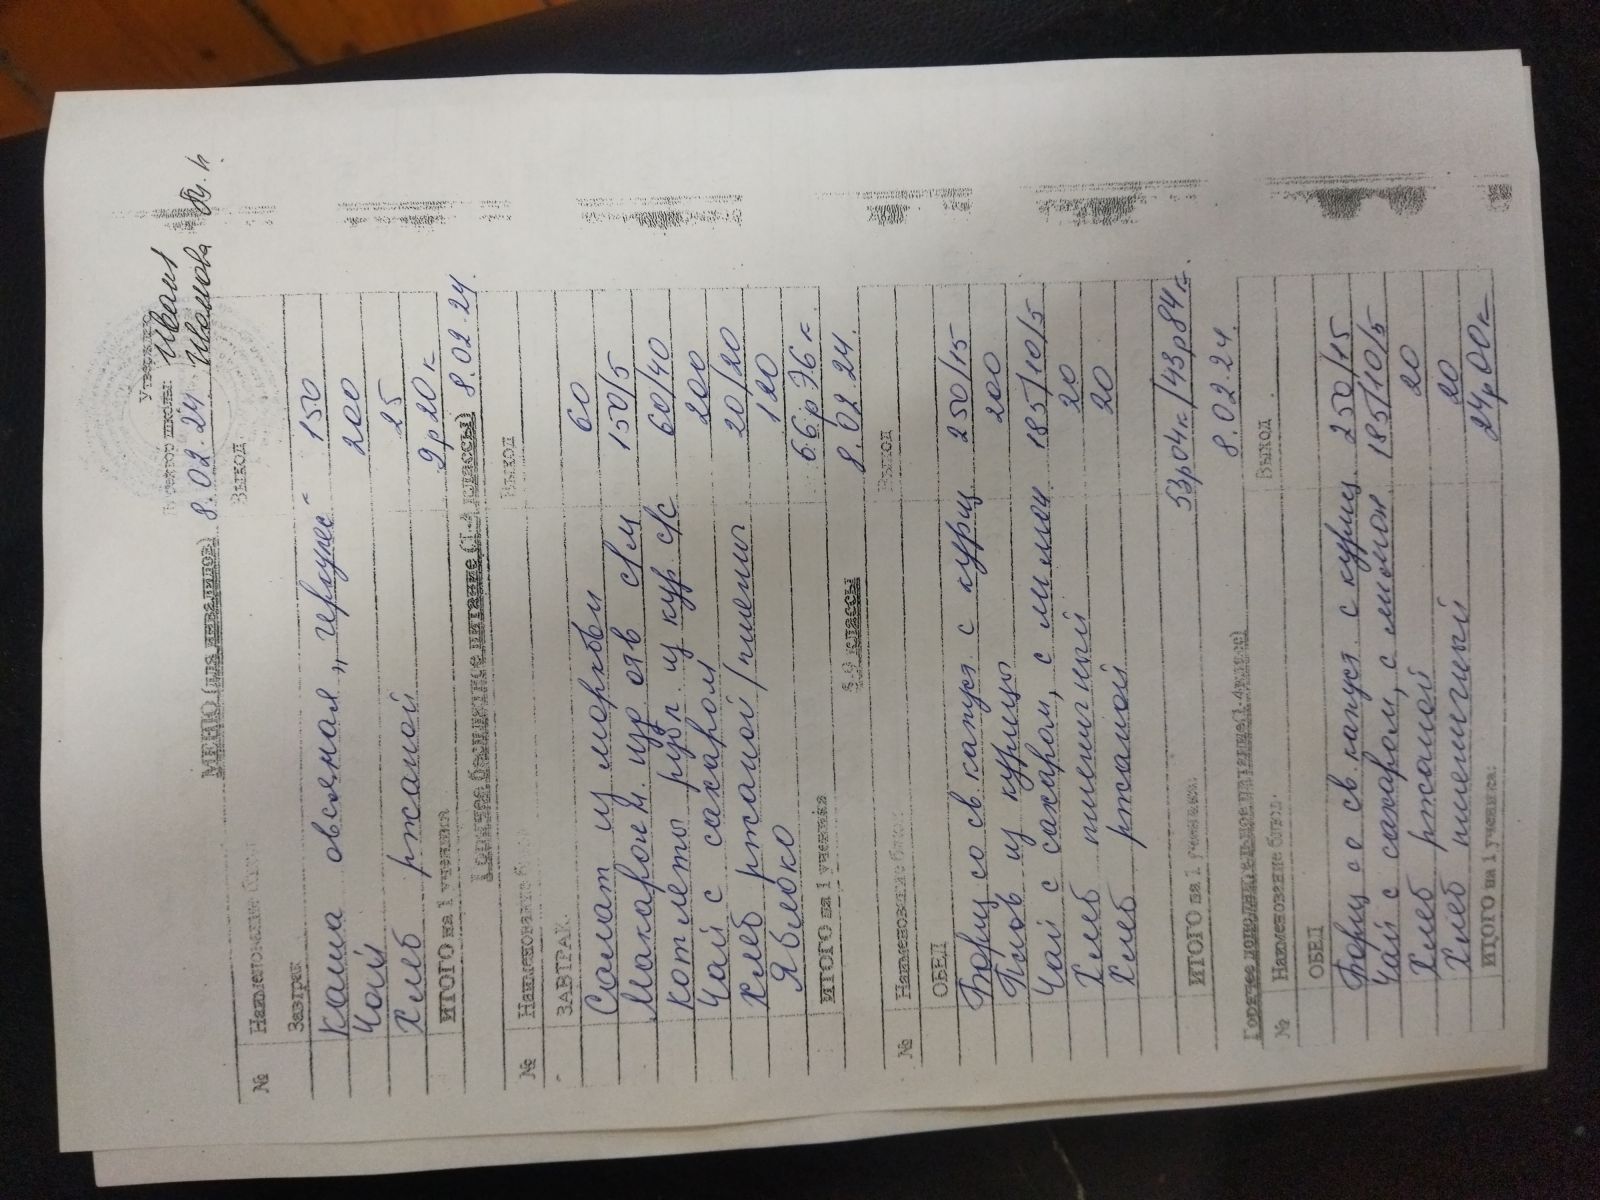 Утверждаю
Директор школы:
МЕНЮ (для инвалидов) 8.02.24
№ Наименование блюд Выход
Завтрак
Каша овсяная „геркулес" 150
Чай 200
Хлеб ржаной 25
ИТОГО на 1 ученика 9р20к
Горячее бесплатное питание (1-4 классы) 8.02.24
№ Наименование блюд Выход
ЗАВТРАК
Салат из моркови 60
Макарон. изд отв с/м 150/5
Котлеты рубл из кур с/с 60/40
Чай с сахаром 200
Хлеб ржаной/пшено 20/20
Яблоко 120
ИТОГО на 1 ученика 66р76к.
классы 8.02.24.
№ Наименование блюд Выход
ОБЕД
Борщ со св. капуст с куриц 250/15
Плов из курицы 200
Чай с сахаром, с лимон 185/10/5
Хлеб пшеничный 20
Хлеб ржаной 20
ИТОГО на 1 ученика 53р04к/43р84к.
Горячее дополнительное питание(1-4класс) 8.02.24.
№ Наименование блюд. Выход
ОБЕД
Борщ со св капуст. с куриц. 250/15
Чай с сахаром, с лимон 185/10/5
Хлеб ржаной 20
Хлеб пшеничный 20
ИТОГО на 1 ученика: 24р00к